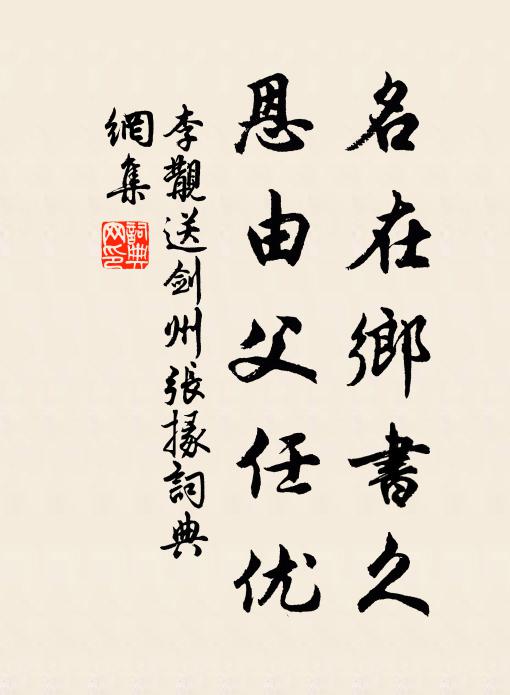 名在鄉書久
恩由父任优
李觏送剑州張掾詞典
網集
詞典
网印